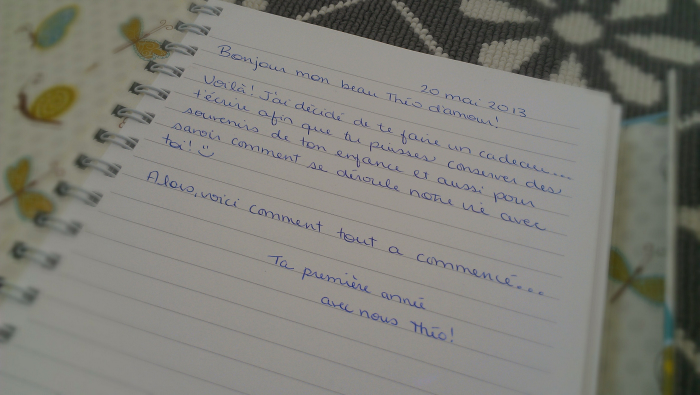 20 mai 2013
Bonjour mon beau Théo d'amour!
Voilà! J'ai décidé de te faire un cadeau...
t'écrire afin que tu puisses conserver des
souvenirs de ton enfance et aussi pour
savoir comment se déroule notre vie avec
toi! :)
Alors, voici comment tout a commencé...
Ta première année
avec nous Théo!